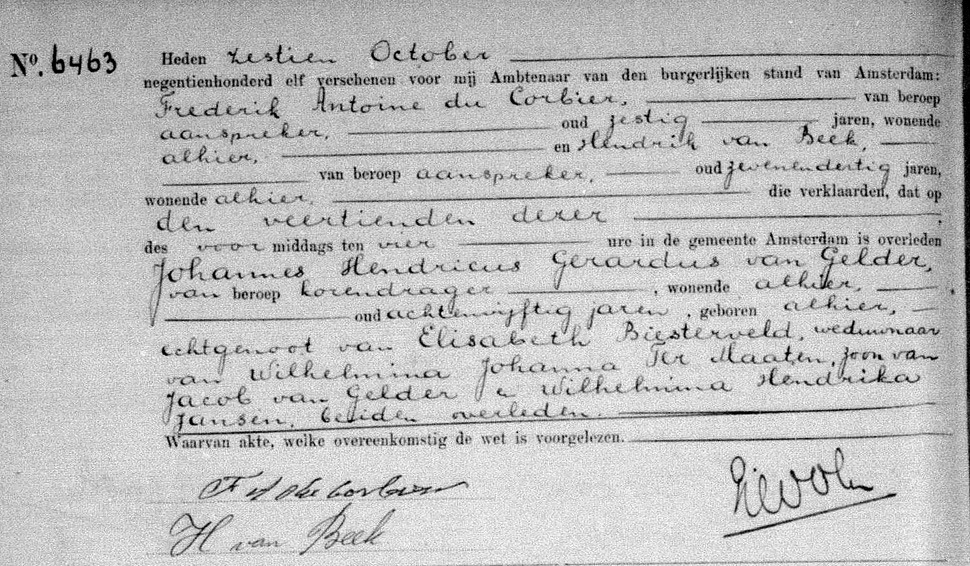 Nº. 6463 Heden zestien October
negentienhonderd elf verschenen voor mij Ambtenaar van den burgerlijken stand van Amsterdam:
Frederik Antoine du Corbier, van beroep
aanspreker, oud zestig jaren, wonende
alhier, en Hendrik van Beek,
van beroep aanspreker, oud zevenendertig jaren,
wonende alhier, die verklaarden, dat op
den veertienden dezer,
des voor middags ten vier ure in de gemeente Amsterdam is overleden
Johannes Hendricus Gerardus van Gelder,
van beroep korendrager, wonende alhier,
oud achtenvijftig jaren, geboren alhier,
echtgenoot van Elisabeth Biesterveld, weduwnaar
van Wilhelmina Johanna Ter Maaten, zoon van
Jacob van Gelder en Wilhelmina Hendrika
Jansen, beiden overleden.
Waarvan akte, welke overeenkomstig de wet is voorgelezen.
F A du Corbier
H van Beek